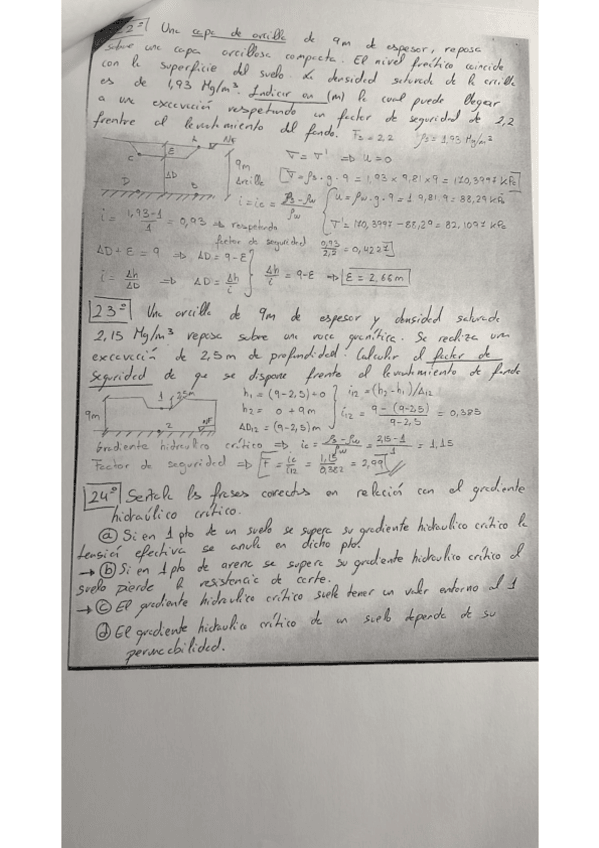 22º Una capa de arcilla de 9m de espesor, reposa
sobre una capa arcillosa compacta. El nivel freático coincide
con la superficie del suelo. La densidad saturada de la arcilla
es de 1,93 Mg/m³. Indicar (m) la cual puede llegar
a una excavación respetando un factor de seguridad de 2,2
frente al levantamiento del fondo. Fs = 2,2 ρs = 1,93 Mg/m³
NF
C
E
ΔD
D
B
9m
Arcilla
σ = σ' ⇒ u = 0
[σ = ρs · g · 9 = 1,93 × 9,81 × 9 = 170,3997 kPa]
i = ic = (ρs - ρw)/ρw
u = ρw · g · 9 = 1 · 9,81 · 9 = 88,29 kPa
σ' = 170,3997 - 88,29 = 82,1097 kPa
i = (1,93 - 1)/1 = 0,93 ⇒ respetando
factor de seguridad 0,93/2,2 = 0,4227]
ΔD + E = 9 ⇒ ΔD = 9 - E
i = Δh/ΔD ⇒ ΔD = Δh/i } Δh/i = 9 - E ⇒ E = 2,66 m
23º Una arcilla de 9m de espesor y densidad saturada
2,15 Mg/m³ reposa sobre una roca granítica. Se realiza una
excavación de 2,5 m de profundidad. Calcular el factor de
seguridad de que se dispone frente al levantamiento de fondo
9m
1
2,5m
2
NF
h1 = (9-2,5) + 0
h2 = 0 + 9m
ΔD12 = (9-2,5)m
i12 = (h2 - h1)/Δ12
i12 = (9 - (9-2,5))/(9-2,5) = 0,385
Gradiente hidraulico crítico ⇒ ic = (ρs - ρw)/ρw = (2,15 - 1)/1 = 1,15
Factor de seguridad ⇒ [F = ic/i12 = 1,15/0,382 = 2,99]
24º Señala las frases correctas en relación con el gradiente
hidraúlico crítico.
ⓐ Si en 1 pto de un suelo se supera su gradiente hidraulico crítico la
tensión efectiva se anula en dicho pto.
→ ⓑ Si en 1 pto de arena se supera su gradiente hidraulico crítico el
suelo pierde la resistencia de corte.
→ ⓒ El gradiente hidraulico crítico suele tener un valor entorno al 1
ⓓ El gradiente hidraulico crítico de un suelo depende de su
permeabilidad.